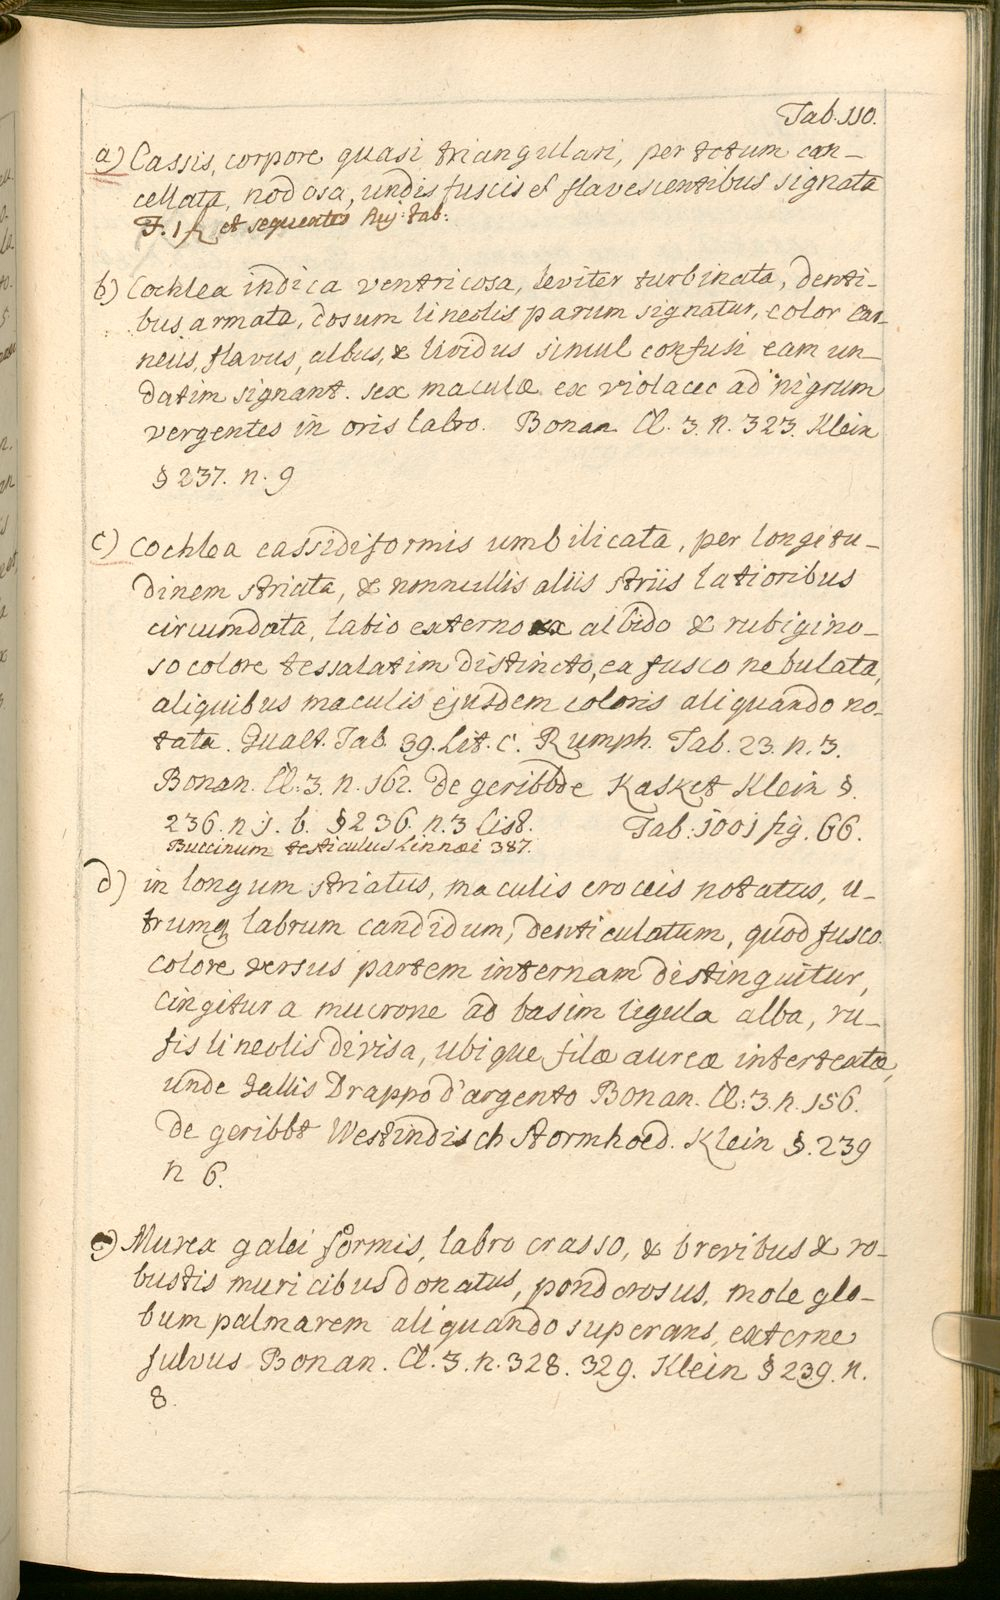 Tab. 110.
a) Cassis, corpore quasi triangulari, per totum can-
cellata, nodosa, undis fuscis et flavescentibus signata
F. 1 et sequentes huj: Tab:
b) Cochlea indica ventricosa, leviter turbinata, denti-
bus armata, dosum lineolis parum signatur, color car-
neus, flavus, albus, & lividus simul confusi eam un-
datim signant. sex maculæ ex violaceo ad nigrum
vergentes in oris labro. Bonan Cl. 3. n. 323. Klein
§ 237. n. 9
c) Cochlea cassidiformis umbilicata, per longitu-
dinem striata, & nonnullis aliis striis latioribus
circumdata, labio externo albido & rubigino-
so colore tessalatim distincto, ex fusco nebulata,
aliquibus maculis ejusdem coloris aliquando no-
tata. Gualt. Tab. 39. Lit. C. Rumph. Tab. 23. n. 3.
Bonan. Cl: 3. n. 162. de geribbde Kasket Klein §.
236. n 1. b. § 236. n. 3 List. Tab: 1001 fig. 66.
Buccinum testiculus Linnæi 387.
d) in longum striatus, maculis croceis notatus, u-
trumq labrum candidum, denticulatum, quod fusco
colore versus partem internam distinguitur,
cingitur a mucrone ad basim ligula alba, ru-
fis lineolis divisa, ubique filæ aureæ intertextæ,
unde Gallis Drappo d'argento Bonan. Cl: 3. n. 156.
de geribbt Westindisch Stormhoed. Klein §. 239
n 6.
e) Murex galei formis, labro crasso, & brevibus & ro-
bustis muricibus donatus, ponderosus, mole glo-
bum palmarem aliquando superans, externe
fulvus Bonan. Cl. 3. n. 328. 329. Klein § 239. n.
8.